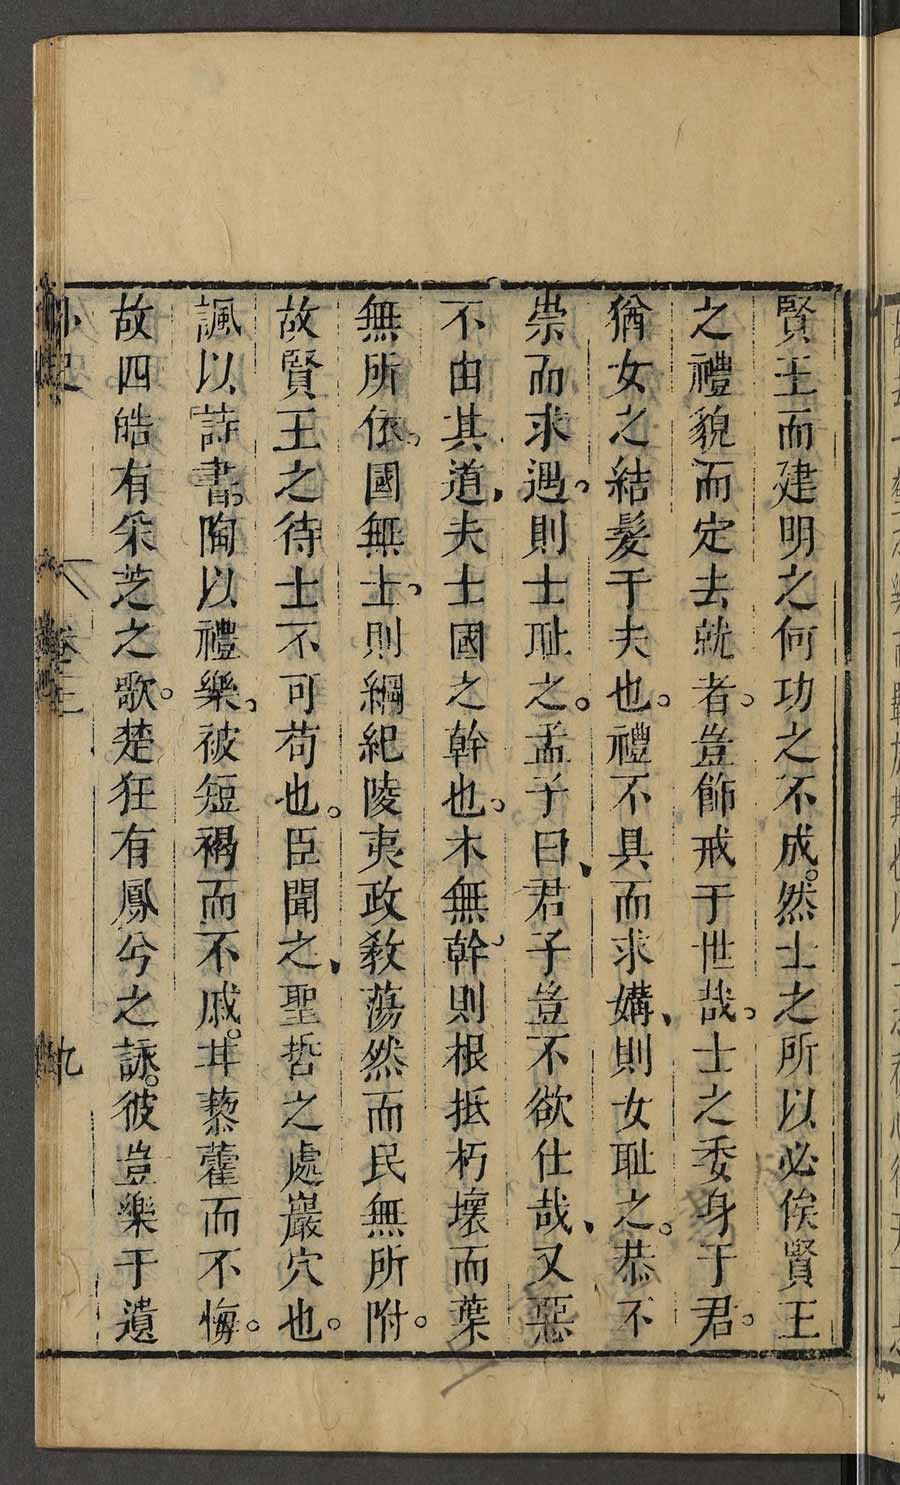 賢王而建明之何功之不成。然士之所以必俟賢王
之禮貌而定去就者。豈飾戒于世哉。士之委身于君。
猶女之結髮于夫也。禮不具而求媾、則女耻之。恭不
崇而求遇。則士耻之。孟子曰、君子豈不欲仕哉、又惡
不由其道、夫士國之幹也。木無幹、則根抵朽壞而葉
無所依。國無士、則綱紀陵夷政敎蕩然而民無所附。
故賢王之待士不可苟也。臣聞之、聖哲之處巖穴也。
諷以詩書。陶以禮樂、被短褐而不戚。茸藜藿而不悔。
故四皓有采芝之歌。楚狂有鳳兮之詠。彼豈樂于遺
卷三
九